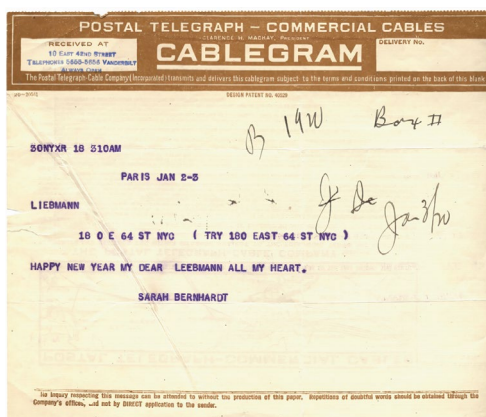 POSTAL TELEGRAPH – COMMERCIAL CABLES
CLARENCE H. MACKAY, PRESIDENT
RECEIVED AT
10 EAST 42ND STREET
TELEPHONES 5650-5656 VANDERBILT
ALWAYS OPEN
DELIVERY NO.
CABLEGRAM
The Postal Telegraph-Cable Company (Incorporated) transmits and delivers this cablegram subject to the terms and conditions printed on the back of this blank
DESIGN PATENT NO. 40529
1920 Box II
30NYXR 18 310AM
PARIS JAN 2-3
LIEBMANN
Jan 3/20
18 0 E 64 ST NYC ( TRY 180 EAST 64 ST NYC )
HAPPY NEW YEAR MY DEAR LEEBMANN ALL MY HEART.
SARAH BERNHARDT
No inquiry respecting this message can be attended to without the production of this paper. Repetitions of doubtful words should be obtained through the
Company's offices, and not by DIRECT application to the sender.